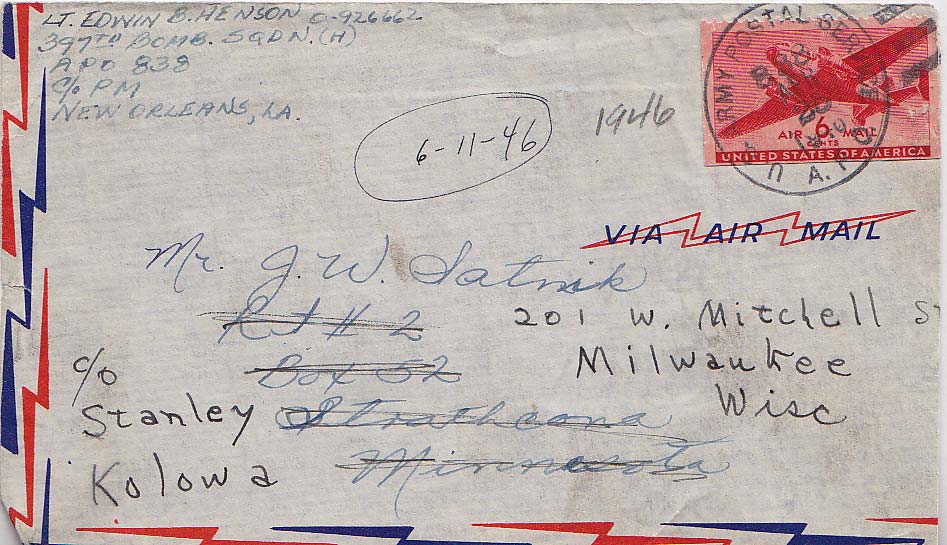 LT. EDWIN B. HENSON O-926662
397TH BOMB. SQDN. (H)
APO 838
C/O PM
NEW ORLEANS, LA.
6-11-46
1946
ARMY POSTAL SERVICE
U A.P.O.
AIR 6 MAIL
CENTS
UNITED STATES OF AMERICA
VIA AIR MAIL
Mr. J. W. Satnik
Rt # 2
Box 52
Strathcona
Minnesota
201 W. Mitchell St
Milwaukee
Wisc
c/o
Stanley
Kolowa